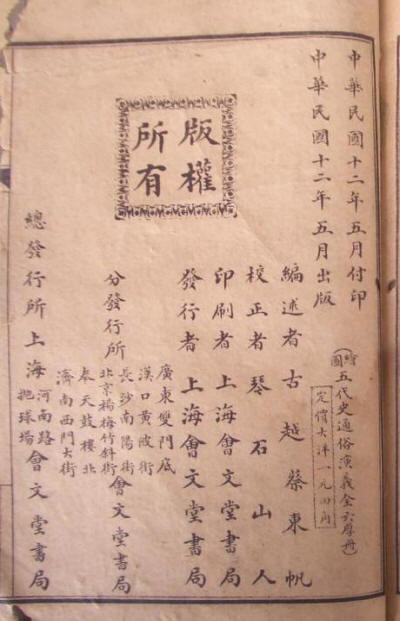 中華民國十二年五月付印
中華民國十二年五月出版
(繪圖)五代史通俗演義全六厚册)
定價大洋一元四角
版權
所有
編述者古越蔡東帆
校正者琴石山人
印刷者上海會文堂書局
發行者上海會文堂書局
分發行所
廣東雙門底
漢口黃陂街
長沙南陽街
北京楊梅竹斜街
奉天鼓樓北
濟南西門大街
會文堂書局
總發行所上海
河南路
拋球場
會文堂書局